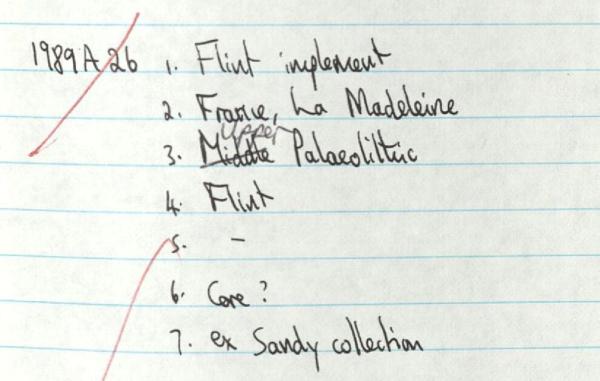 1989A 26 1. Flint implement
2. France, La Madeleine
Upper
3. Middle Palaeolithic
4. Flint
5. -
6. Core?
7. ex Sandy collection